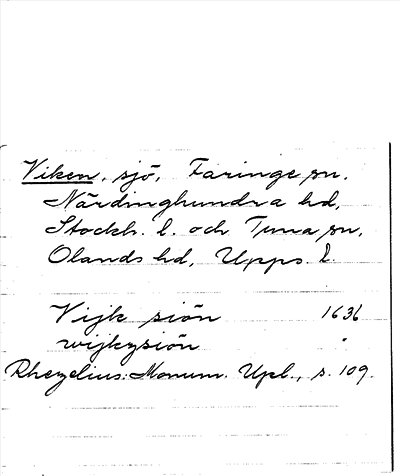 Viken, sjö, Faringe sn,
Närdinghundra hd,
Stockh. l. och Tuna sn,
Olands hd, Upps. l.
Vijk siön 1636
wijkysiön "
Rhezelius: Monum. Upl., s. 109.